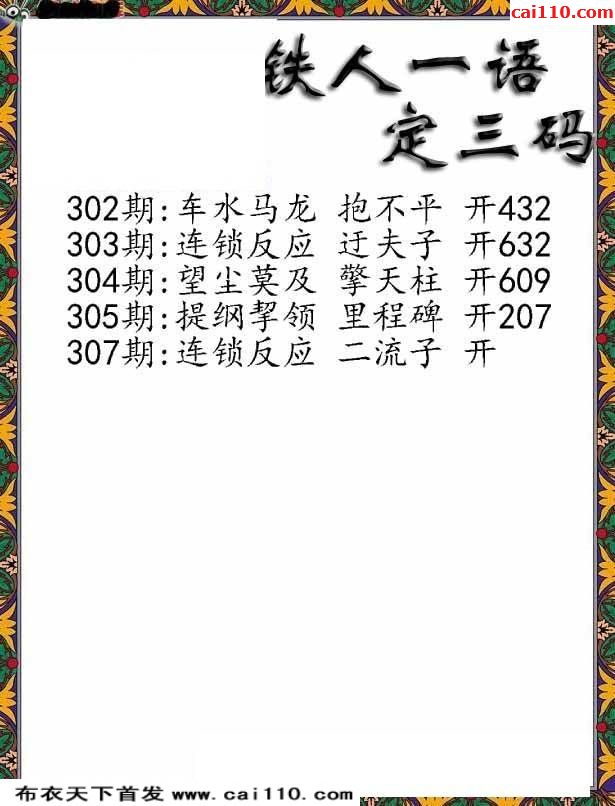 cai110.com
铁人一语
定三码
302期:车水马龙 抱不平 开432
303期:连锁反应 迂夫子 开632
304期:望尘莫及 擎天柱 开609
305期:提纲挈领 里程碑 开207
307期:连锁反应 二流子 开
布衣天下首发 www.cai110.com